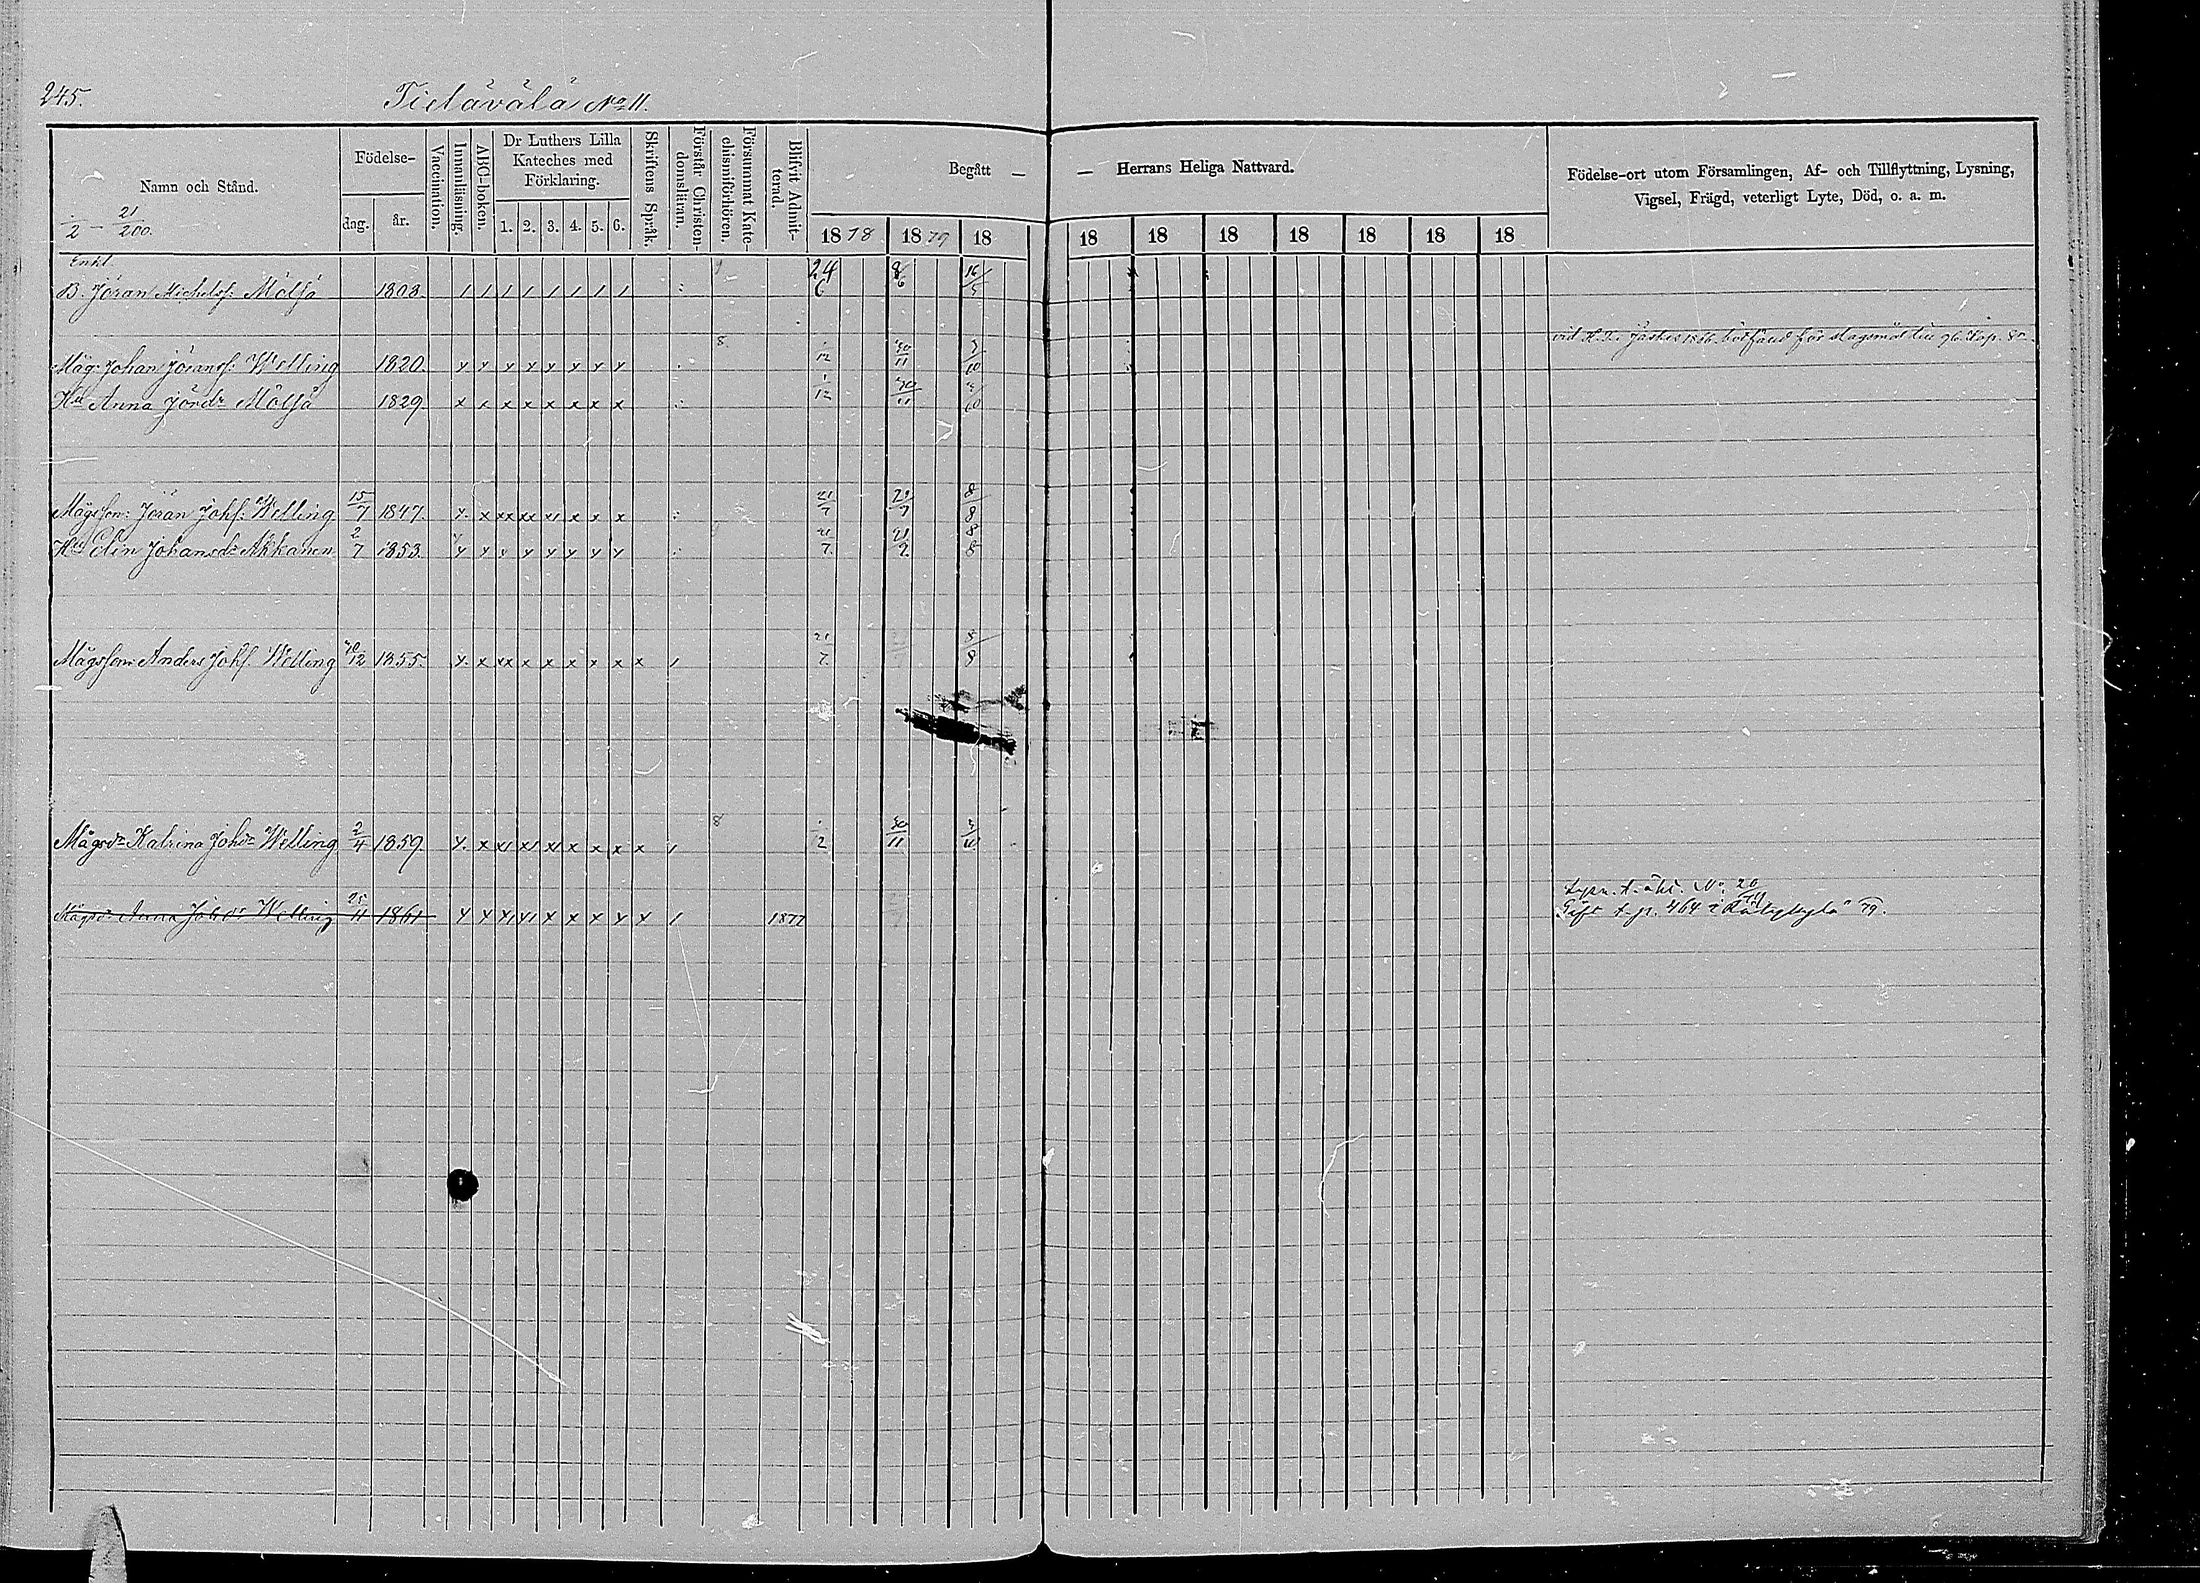 245. Tietävälä No 11.
Namn och Stånd.
Födelse-
dag. år.
Vaccination.
Innanläsning.
ABC-boken.
Dr Luthers Lilla
Kateches med
Förklaring.
1. 2. 3. 4. 5. 6.
Skriftens Språk.
Förstår Christen-
domsläran.
Försummat Kate-
chismiförhören.
Blifvit Admit-
terad.
Begått — — Herrans Heliga Nattvard.
1878 1879 18 18 18 18 18 18 18 18
Födelse-ort utom Församlingen, Af- och Tillflyttning, Lysning,
Vigsel, Frägd, veterligt Lyte, Död, o. a. m.
1/2 - 21/200.
Enkl
B. Jöran Michelsf: Mölsä 1803. / / / / / / / / 24/6 8/6 16/5
Måg: Johan Jöransf: Welling 1820. y y y y y y y y 8 1/12 30/11 3/10
Hu Anna Jördr Mölsä 1829. x x x x x x x x 1/12 30/11 3/10
Mågsson: Jöran Johsf: Welling 15/7 1847. y. x xx xx xi x x x 21/7 8/8
Hu Elin Johansdr Akkanen 2/7 1853. y y y y y y y y 21/7 8/8
Mågsson: Anders Johsf. Welling 30/12 1855. y. x xx x x x x x x / 21/7 8/8
Mågsdr Katrina Johdr Welling 2/4 1859. y. x xi xi xi x x x x / 8 30/11 3/10
Mågsdr Anna Johdr Welling 25/11 1861 y x xi xi x x x y y / 1877
Gift t. p. 464 i 79.